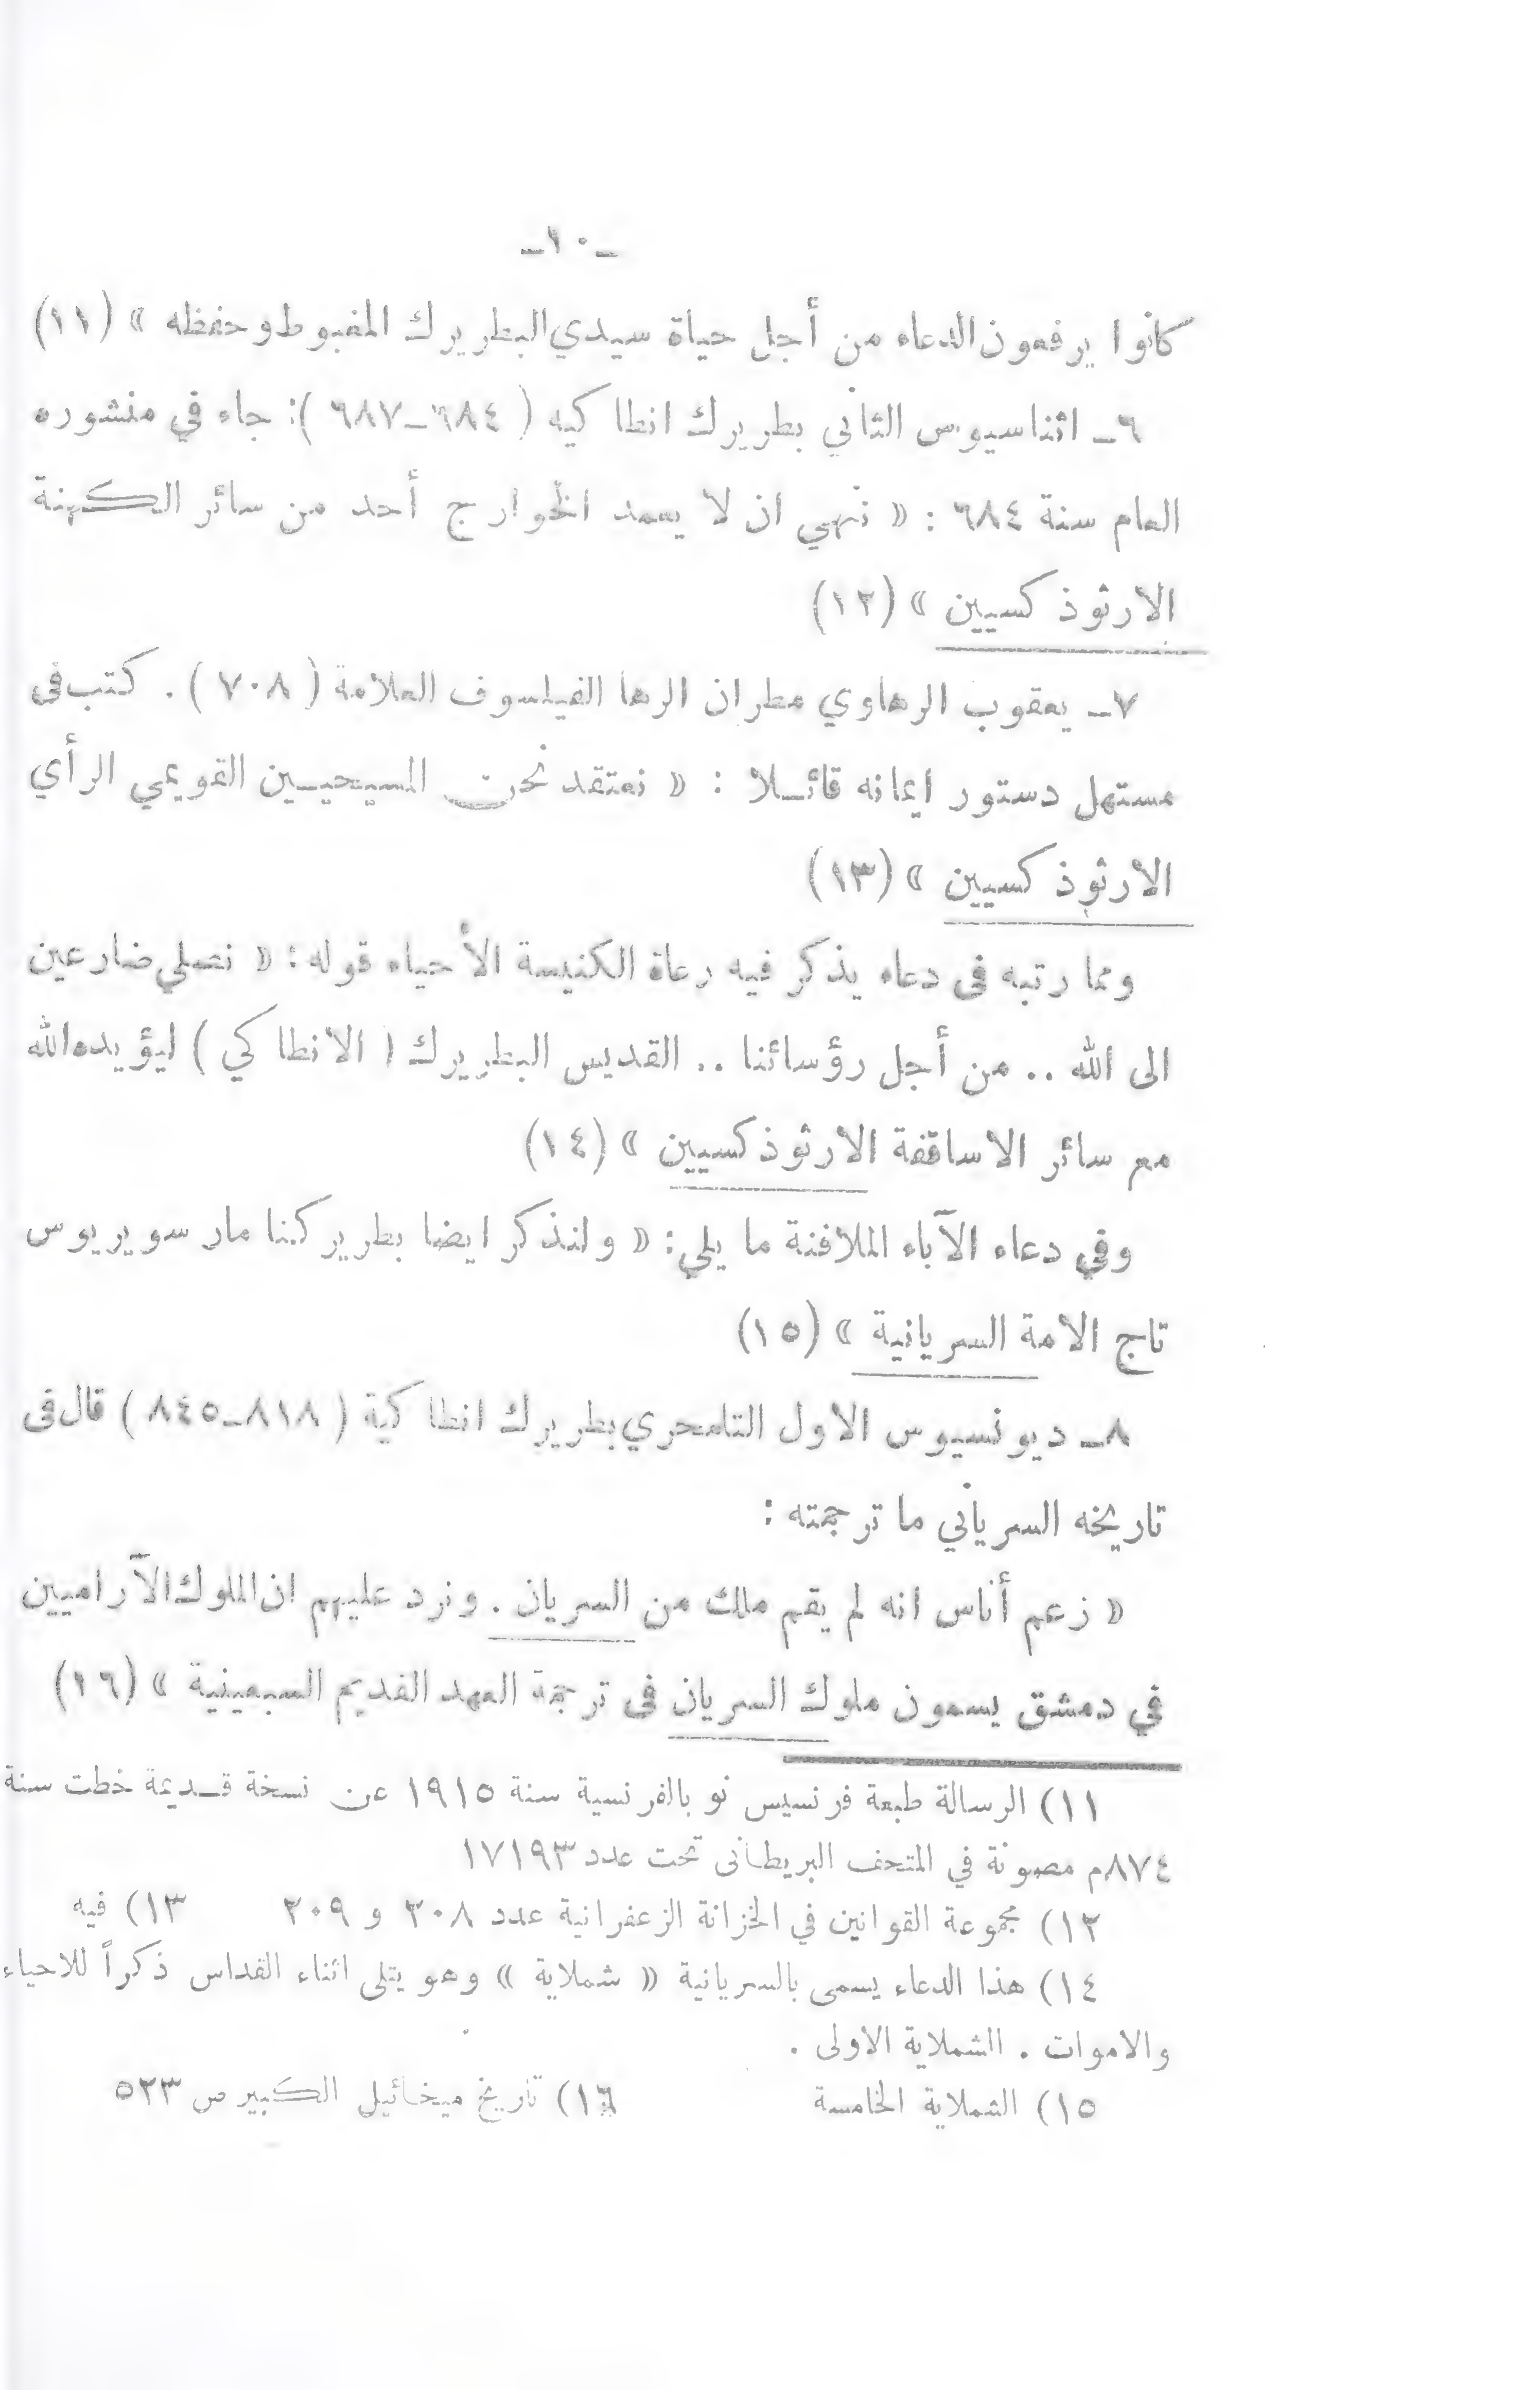 ـ١٠ـ
كانوا يرفعون الدعاء من أجل حياة سيدي البطريرك المغبوط وحفظه » (١١)
٦ـ اثناسيوس الثاني بطريرك انطاكيه ( ٦٨٤ـ٦٨٧ ): جاء في منشوره
العام سنة ٦٨٤ : « نهي ان لا يعمد الخوارج أحد من سائر الكهنة
الارثوذكسيين » (١٢)
٧ـ يعقوب الرهاوي مطران الرها الفيلسوف العلامة ( ٧٠٨ ) . كتب فى
مستهل دستور ايمانه قائلا : « نعتقد نحن المسيحيين القويمي الرأي
الارثوذكسيين » (١٣)
ومما رتبه فى دعاء يذكر فيه رعاة الكنيسة الأحياء قوله : « نصلي ضارعين
الى الله .. من أجل رؤسائنا .. القديس البطريرك ( الانطاكي ) ليؤيده الله
مع سائر الاساقفة الارثوذكسيين » (١٤)
وفي دعاء الآباء الملافنة ما يلي : « ولنذكر ايضا بطريركنا مار سويريوس
تاج الامة السريانية » (١٥)
٨ـ ديونسيوس الاول التلمحري بطريرك انطاكية ( ٨١٨ـ٨٤٥ ) قال فى
تاريخه السرياني ما ترجمته :
« زعم أناس انه لم يقم ملك من السريان . ونرد عليهم ان الملوك الآراميين
في دمشق يسمون ملوك السريان فى ترجمة العهد القديم السبعينية » (١٦)
١١) الرسالة طبعة فرنسيس نو بالفرنسية سنة ١٩١٥ عن نسخة قديمة خطت سنة
٨٧٤م مصونة في المتحف البريطانى تحت عدد ١٧١٩٣
١٢) مجموعة القوانين في الخزانة الزعفرانية عدد ٢٠٨ و ٢٠٩ ١٣) فيه
١٤) هذا الدعاء يسمى بالسريانية « شملاية » وهو يتلى اثناء القداس ذكراً للاحياء
والاموات . الشملاية الاولى .
١٥) الشملاية الخامسة ١٦) تاريخ ميخائيل الكبير ص ٥٢٣